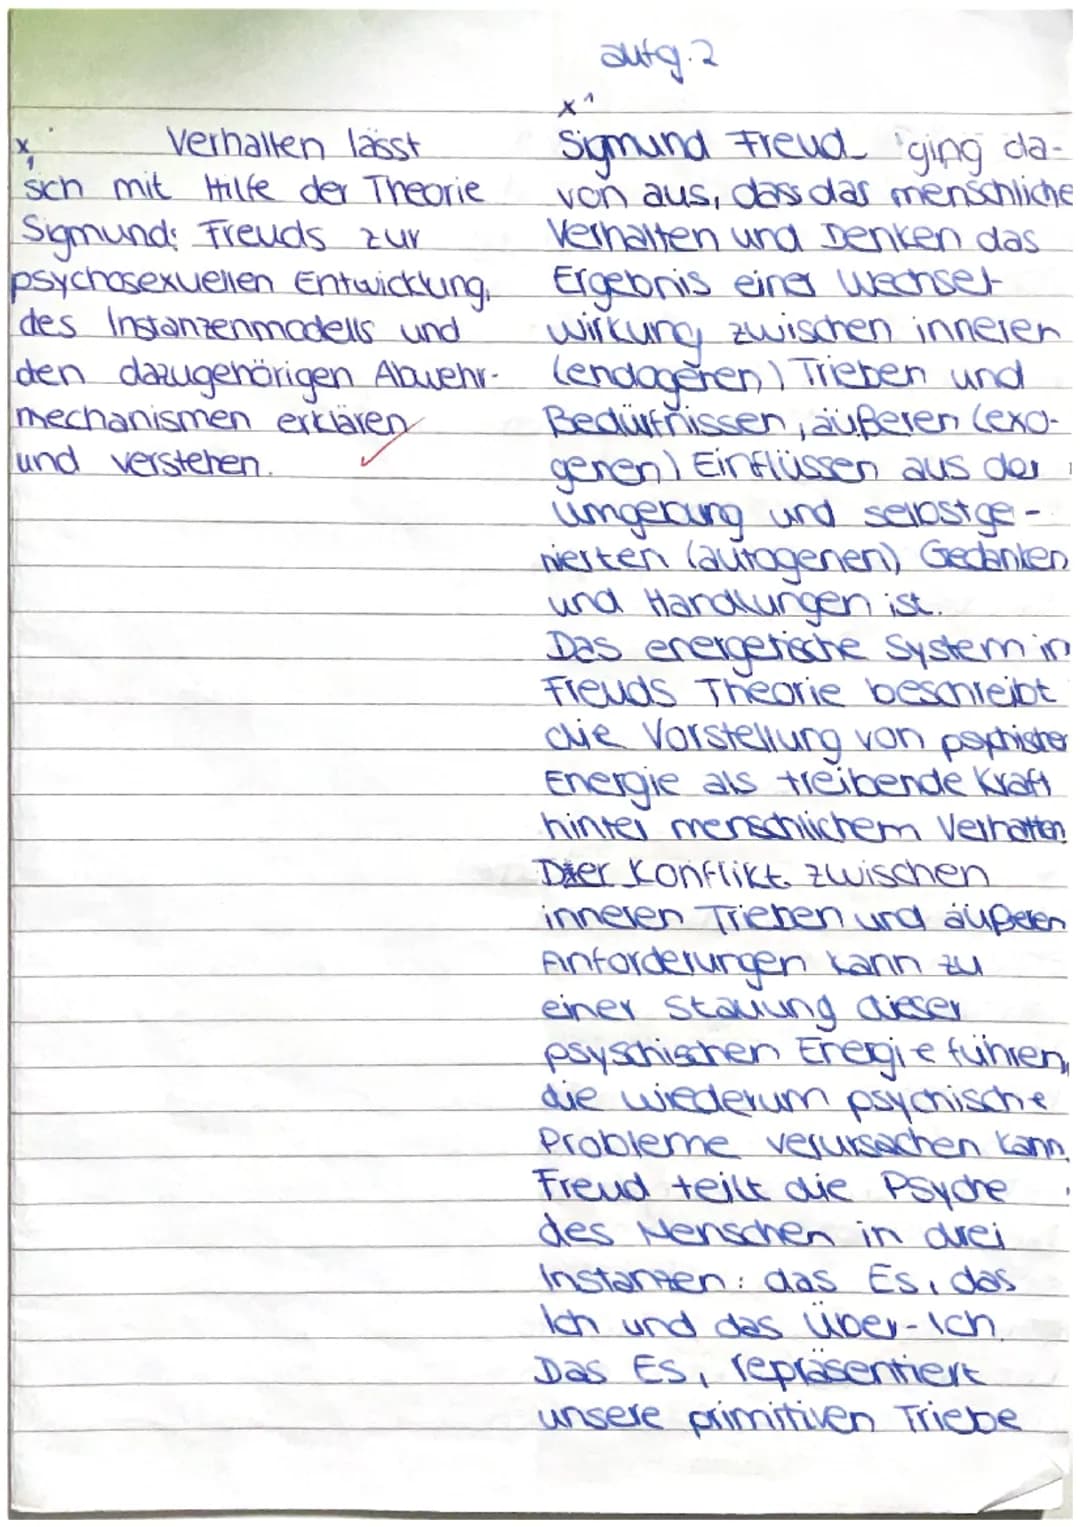 aufg. 2
x1
x1 Verhalten lässt
sich mit Hilfe der Theorie
Sigmund Freuds zur
psychosexuellen Entwicklung,
des Instanzenmodells und
den dazugehörigen Abwehr-
mechanismen erklären
und verstehen.
Sigmund Freud ging da-
von aus, dass das menschliche
Verhalten und Denken das
Ergebnis einer Wechsel-
wirkung zwischen inneren
(endogenen) Trieben und
Bedürfnissen, äußeren (exo-
genen) Einflüssen aus der
Umgebung und selbstge-
nierten (autogenen) Gedanken
und Handlungen ist.
Das energetische System in
Freuds Theorie beschreibt
die Vorstellung von psychischer
Energie als treibende Kraft
hinter menschlichem Verhalten.
Der Konflikt zwischen
inneren Trieben und äußeren
Anforderungen kann zu
einer Stauung dieser
psyschischen Energie führen,
die wiederum psychische
Probleme verursachen kann.
Freud teilt die Psyche
des Menschen in drei
Instanzen: das Es, das
Ich und das Über-Ich.
Das Es, repräsentiert
unsere primitiven Triebe